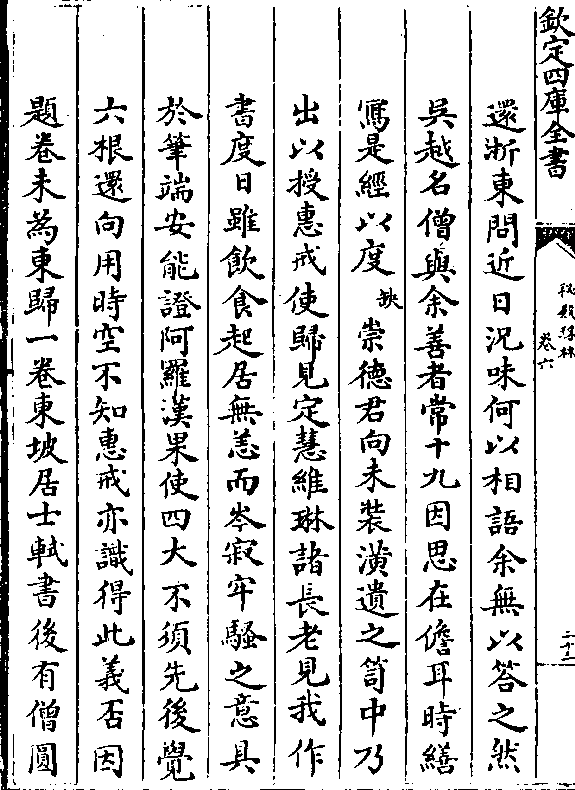 欽定四庫全書
秘殿珠林
卷六
二十二
還浙東問近日況味何以相語余無以答之然
吳越名僧與余善者常十九因思在儋耳時繕
寫是經以度缺崇德君向未裝潢遺之笥中乃
出以授惠戒使歸見定慧維琳諸長老見我作
書度日雖飲食起居無恙而岑寂牢騷之意具
於筆端安能證阿羅漢果使四大不須先後覺
六根還向用時空不知惠戒亦識得此義否因
題卷末為東歸一卷東坡居士軾書後有僧圓